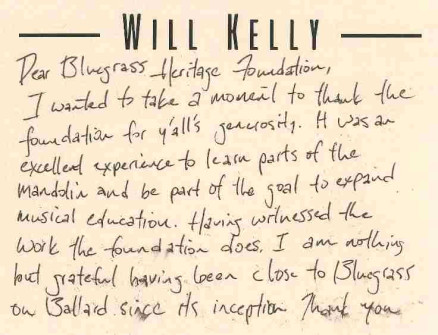 WILL KELLY
Dear Bluegrass Heritage Foundation,
I wanted to take a moment to thank the
foundation for y'all's generosity. It was an
excellent experience to learn parts of the
mandolin and be part of the goal to expand
musical education. Having witnessed the
work the foundation does, I am nothing
but grateful having been close to Bluegrass
on Ballard since its inception Thank you